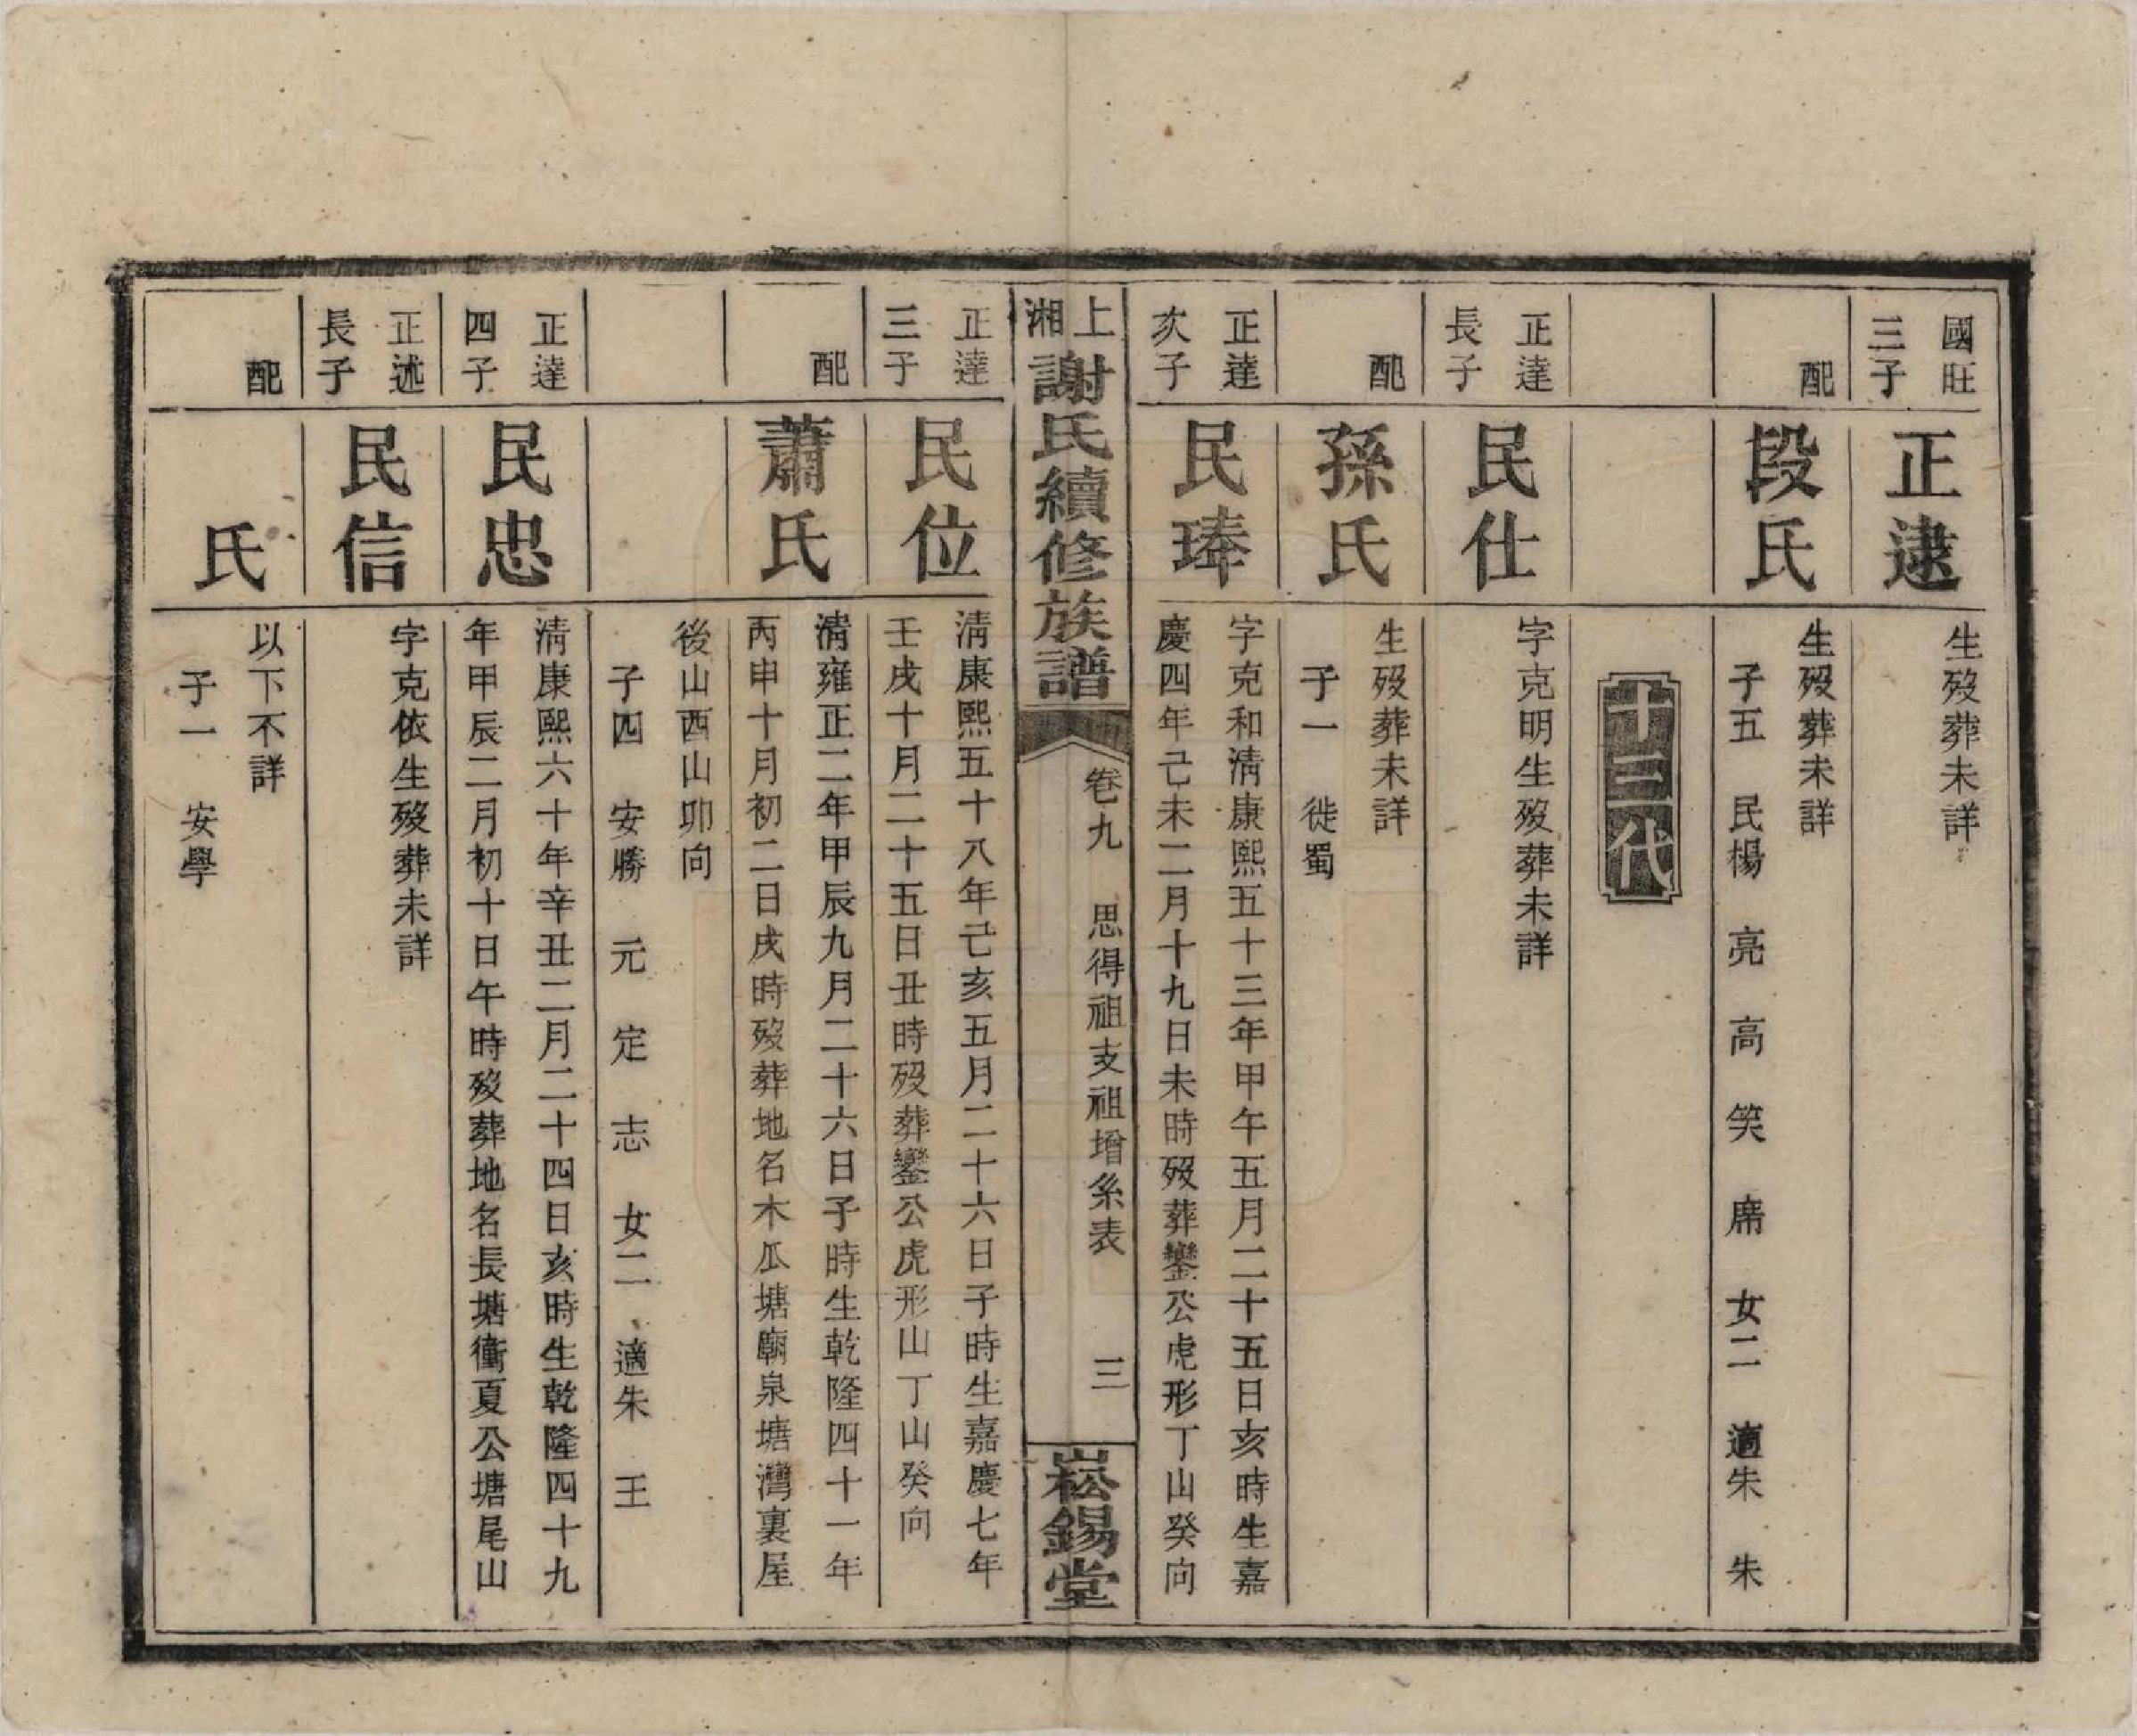 國旺
三子
正逮
生歿葬未詳
配
段氏
生歿葬未詳
子五 民楊 亮 高 笑 席 女二 適朱 朱
十三代
正達
長子
民仕
字克明生歿葬未詳
配
孫氏
生歿葬未詳
子一 徙蜀
正達
次子
民琫
字克和清康熙五十三年甲午五月二十五日亥時生嘉
慶四年己未二月十九日未時歿葬鑾公虎形丁山癸向
上湘
謝氏續修族譜
卷九 思得祖支祖增系表 三
崧錫堂
正達
三子
民位
清康熙五十八年己亥五月二十六日子時生嘉慶七年
壬戌十月二十五日丑時歿葬鑾公虎形山丁山癸向
配
蕭氏
清雍正二年甲辰九月二十六日子時生乾隆四十一年
丙申十月初二日戌時歿葬地名木瓜塘廟泉塘灣裏屋
後山酉山卯向
子四 安勝 元 定 志 女二 適朱 王
正達
四子
民忠
清康熙六十年辛丑二月二十四日亥時生乾隆四十九
年甲辰二月初十日午時歿葬地名長塘衝夏公塘尾山
正述
長子
民信
字克依生歿葬未詳
配
氏
以下不詳
子一 安學